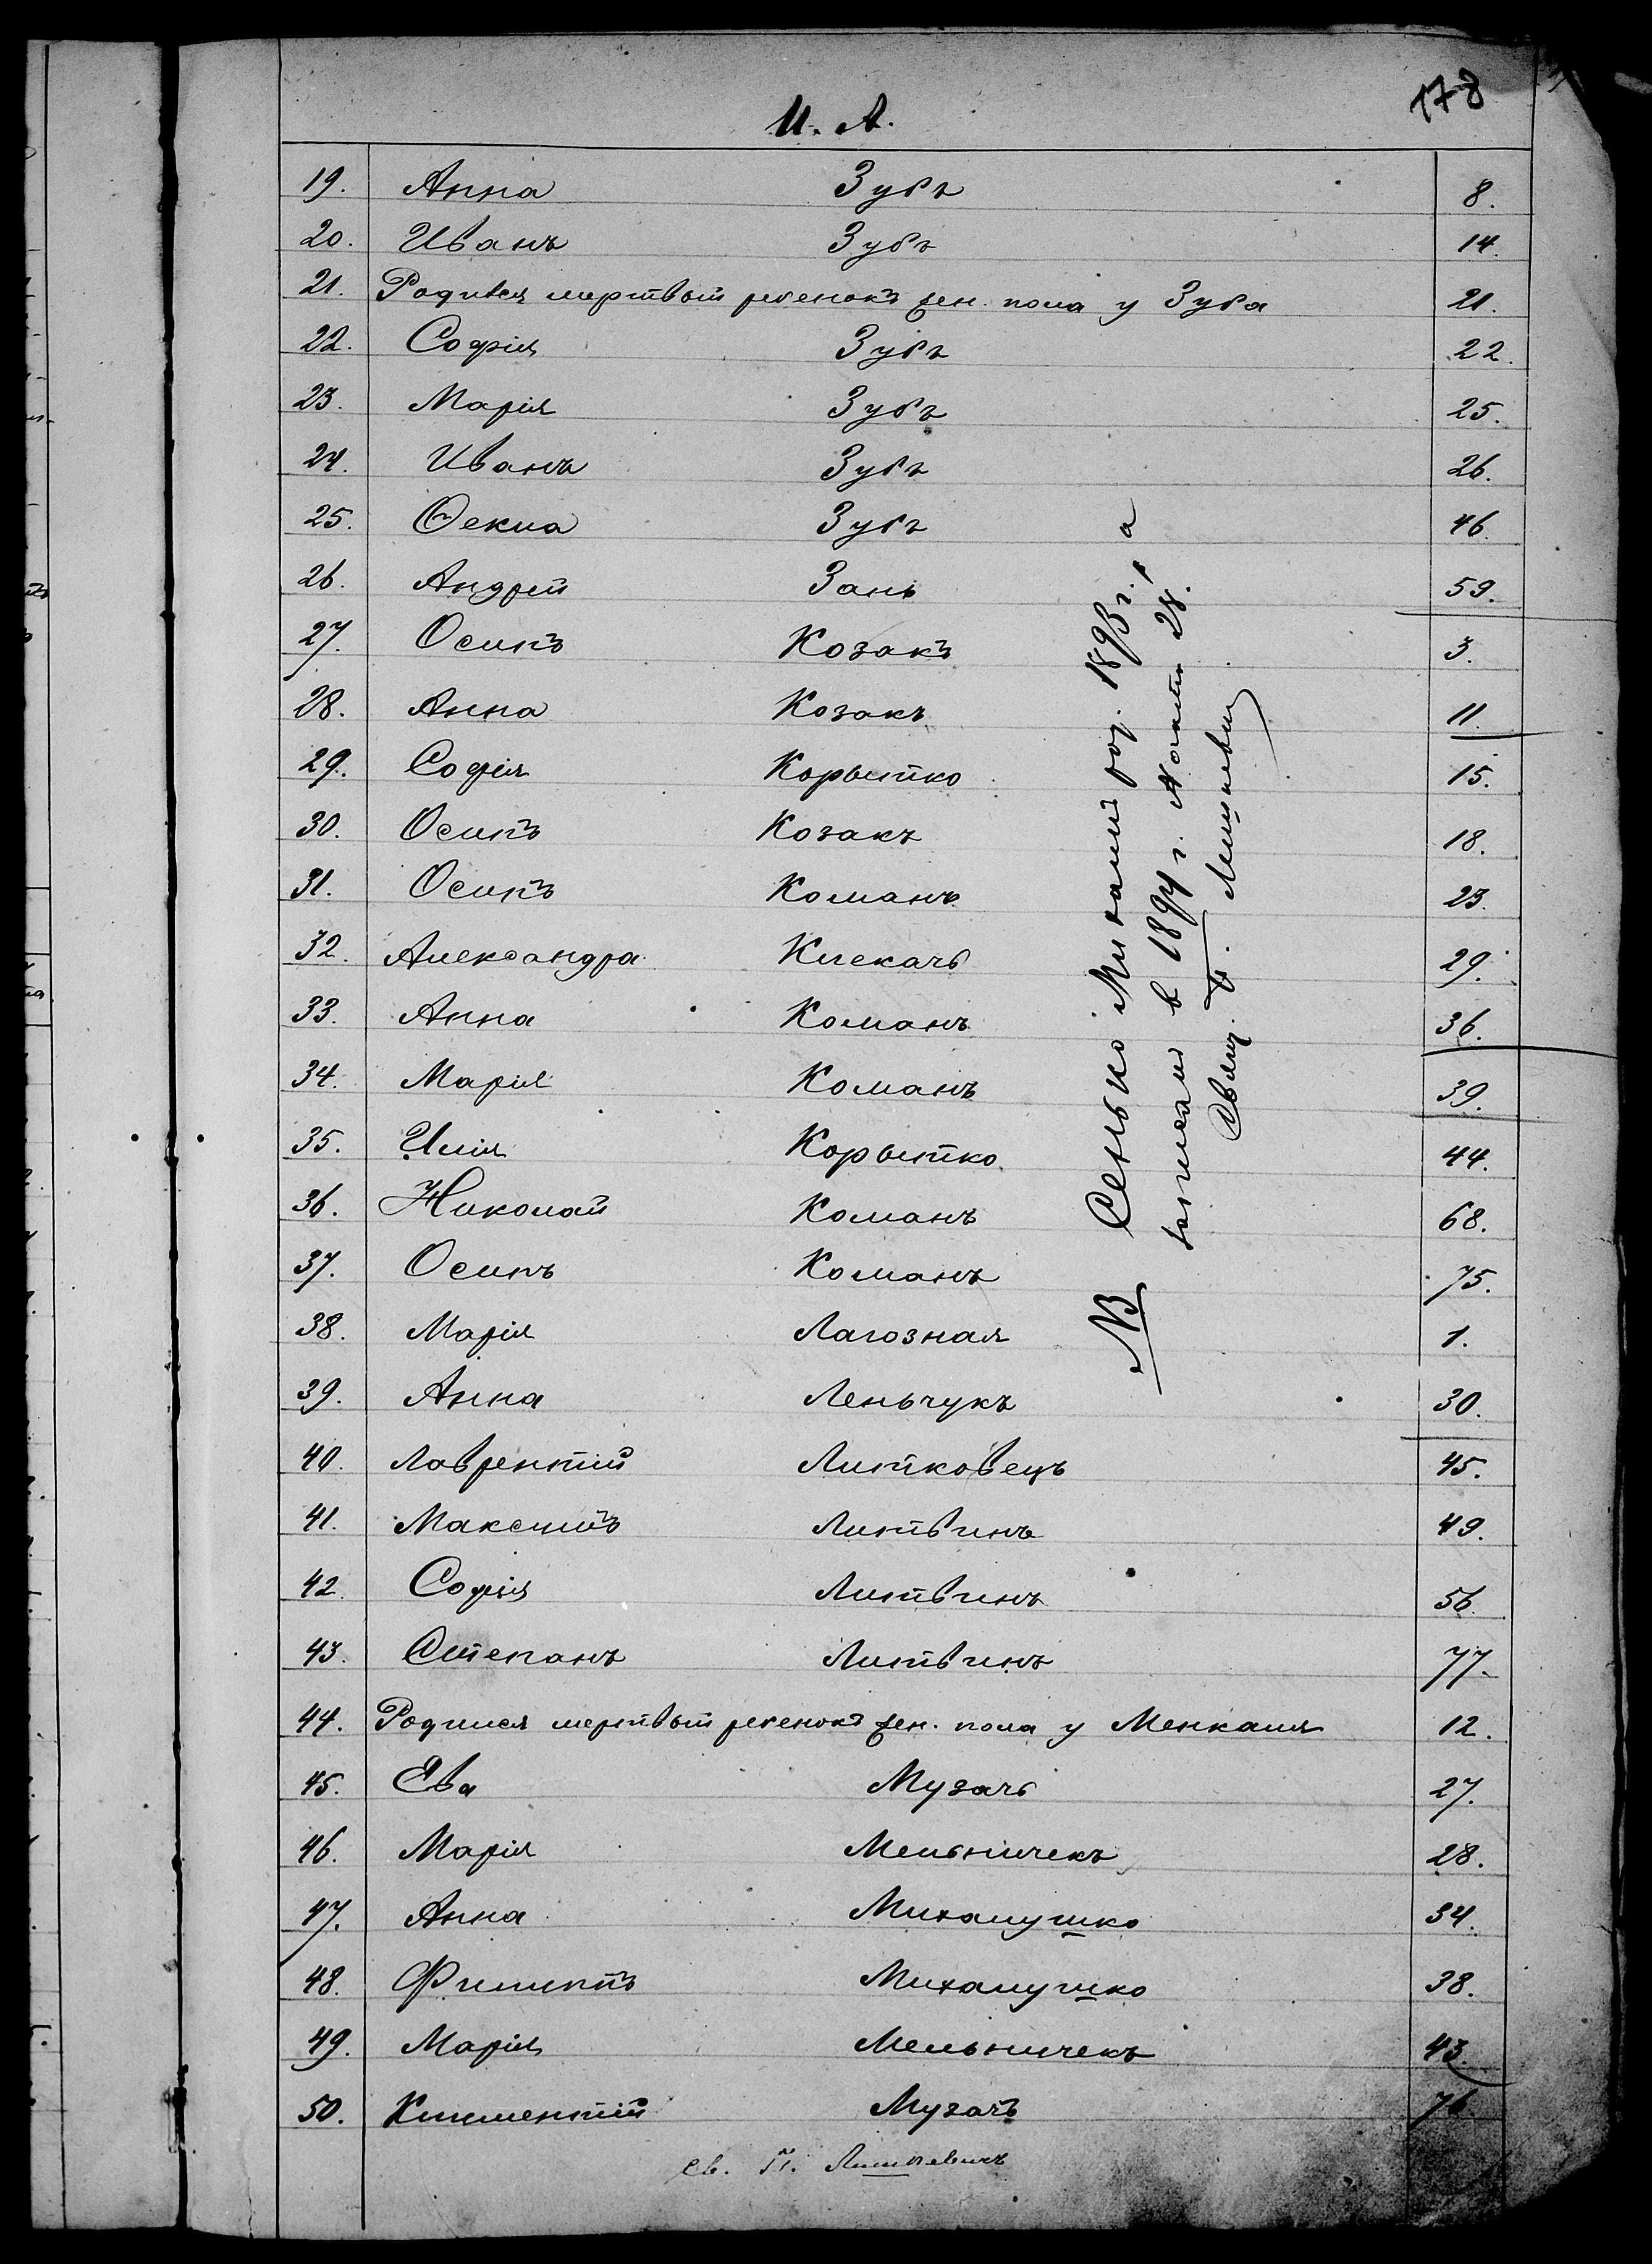 178
И. А.
19. Анна Зубъ 8.
20. Иванъ Зубъ 14.
21. Родился мертвый ребенокъ жен. пола у Зуба 21.
22. Софія Зубъ 22.
23. Марія Зубъ 25.
24. Иванъ Зубъ 26.
25. Ѳекла Зубъ 46.
26. Андрей Зань 59.
27. Осипъ Козакъ 3.
28. Анна Козакъ 11.
29. Софія Корытко 15.
30. Осипъ Козакъ 18.
31. Осипъ Команъ 23.
32. Александра Клекачъ 29.
33. Анна Команъ 36.
34. Марія Команъ 39.
35. Илія Корытко 44.
36. Николай Команъ 68.
37. Осипъ Команъ 75.
38. Марія Лагозная 1.
39. Анна Леньчукъ 30.
40. Лаврентій Литковецъ 45.
41. Максимъ Литвинъ 49.
42. Софія Литвинъ 56.
43. Степанъ Литвинъ 77.
44. Родился мертвый ребенокъ жен. пола у Менкаля 12.
45. Ева Музачъ 27.
46. Марія Мельничекъ 28.
47. Анна Михалушко 34.
48. Филиппъ Михалушко 38.
49. Марія Мельничекъ 43.
50. Климентій Музачъ 76.
св. П. Лишкевичъ
NB Сенько Михаилъ род. 1893 г., а
записан в 1894 г. № акта 28.
Свящ. П. Лишкевич